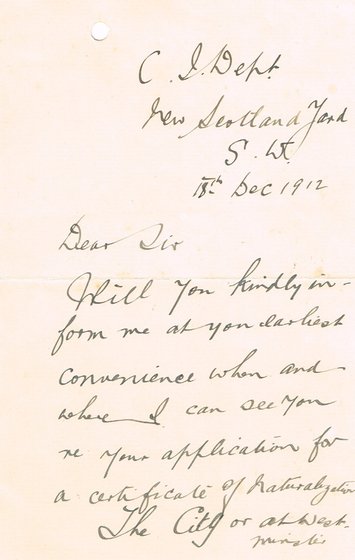 C. I. Dept.
New Scotland Yard
S. W.
18th Dec 1912
Dear Sir
Will you kindly in-
form me at you earliest
convenience when and
where I can see you
re your application for
a certificate of Naturalization
The City or at West-
minster